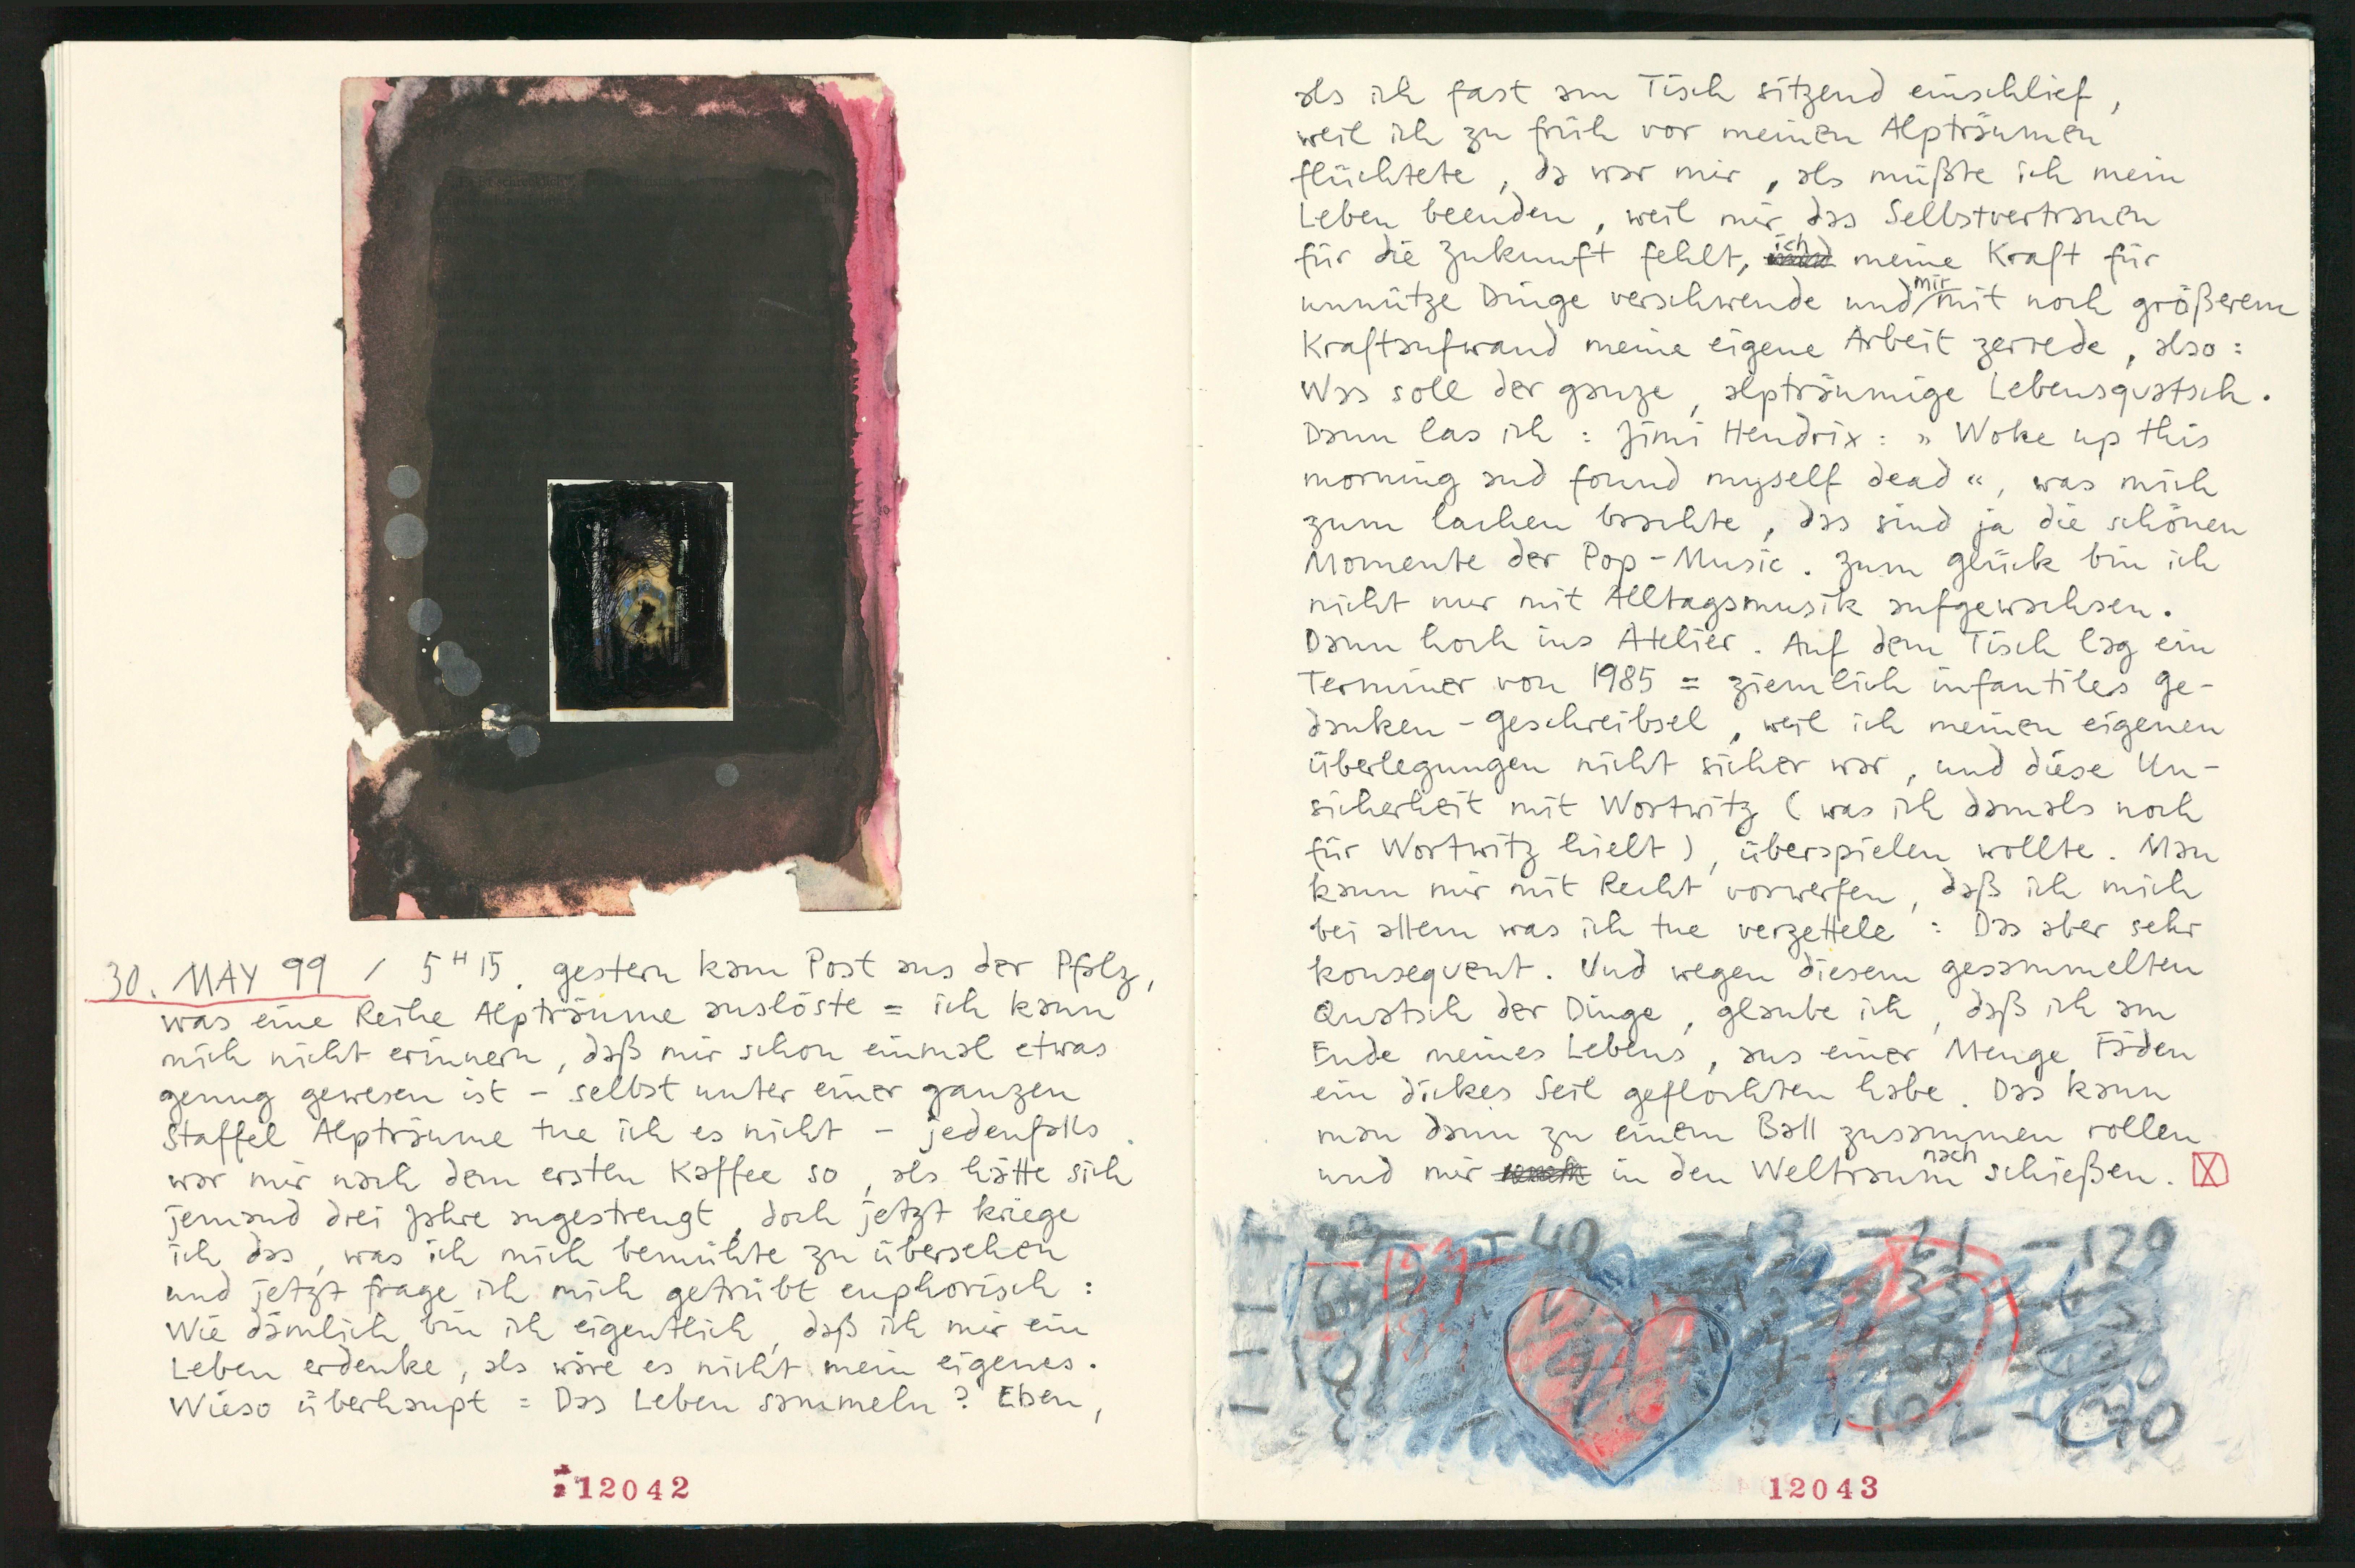 30. MAY 99 / 5 H 15. gestern kam Post aus der Pfalz,
was eine Reihe Alpträume auslöste = ich kann
mich nicht erinnern, daß mir schon einmal etwas
genug gewesen ist – selbst unter einer ganzen
Staffel Alpträume tue ich es nicht – jedenfalls
war mir nach dem ersten Kaffee so, als hätte sich
jemand drei Jahre angestrengt, doch jetzt kriege
ich das, was ich mich bemühte zu übersehen
und jetzt frage ich mich getrübt euphorisch :
Wie dämlich bin ich eigentlich, daß ich mir ein
Leben erdenke, als wäre es nicht mein eigenes.
Wieso überhaupt = Das Leben sammeln? Eben,
12042
als ich fast am Tisch sitzend einschlief,
weil ich zu früh vor meinen Alpträumen
flüchtete, da war mir, als müßte ich mein
Leben beenden, weil mir das Selbstvertrauen
für die Zukunft fehlt, ich meine Kraft für
unnütze Dinge verschwende und mir mit noch größerem
Kraftaufwand meine eigene Arbeit zerrede, also :
Was soll der ganze, alpträumige Lebensquatsch.
Dann las ich : Jimi Hendrix : » Woke up this
morning and found myself dead «, was mich
zum lachen brachte, das sind ja die schönen
Momente der Pop-Music. Zum glück bin ich
nicht nur mit Alltagsmusik aufgewachsen.
Dann hoch ins Atelier. Auf dem Tisch lag ein
Terminer von 1985 = ziemlich infantiles ge-
danken-geschreibsel, weil ich meinen eigenen
überlegungen nicht sicher war, und diese Un-
sicherheit mit Wortwitz ( was ich damals noch
für Wortwitz hielt ), überspielen wollte. Man
kann mir mit Recht vorwerfen, daß ich mich
bei allem was ich tue verzettele : Das aber sehr
konsequent. Und wegen diesem gesammelten
Quatsch der Dinge, glaube ich, daß ich am
Ende meines Lebens, aus einer Menge Fäden
ein dickes Seil geflochten habe. Das kann
man dann zu einem Ball zusammen rollen
und mir in den Weltraum nach schießen. X
- 40 - 13 - 21 - 129
12043